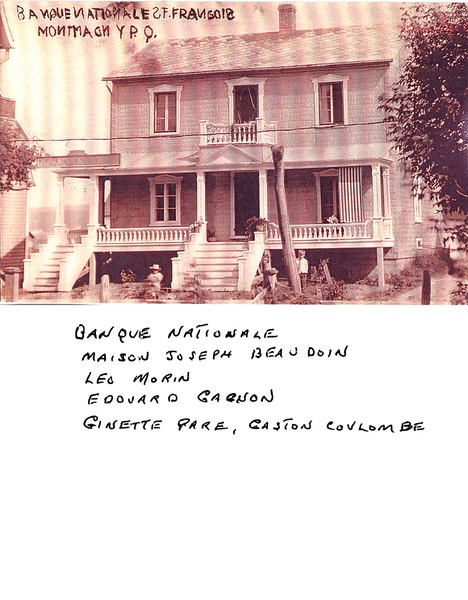 BANQUE NATIONALE ST. FRANÇOIS
MONTMAGNY P.Q.
BANQUE NATIONALE
MAISON JOSEPH BEAUDOIN
LEO MORIN
EDOUARD GAGNON
GINETTE PARE, GASTON COULOMBE